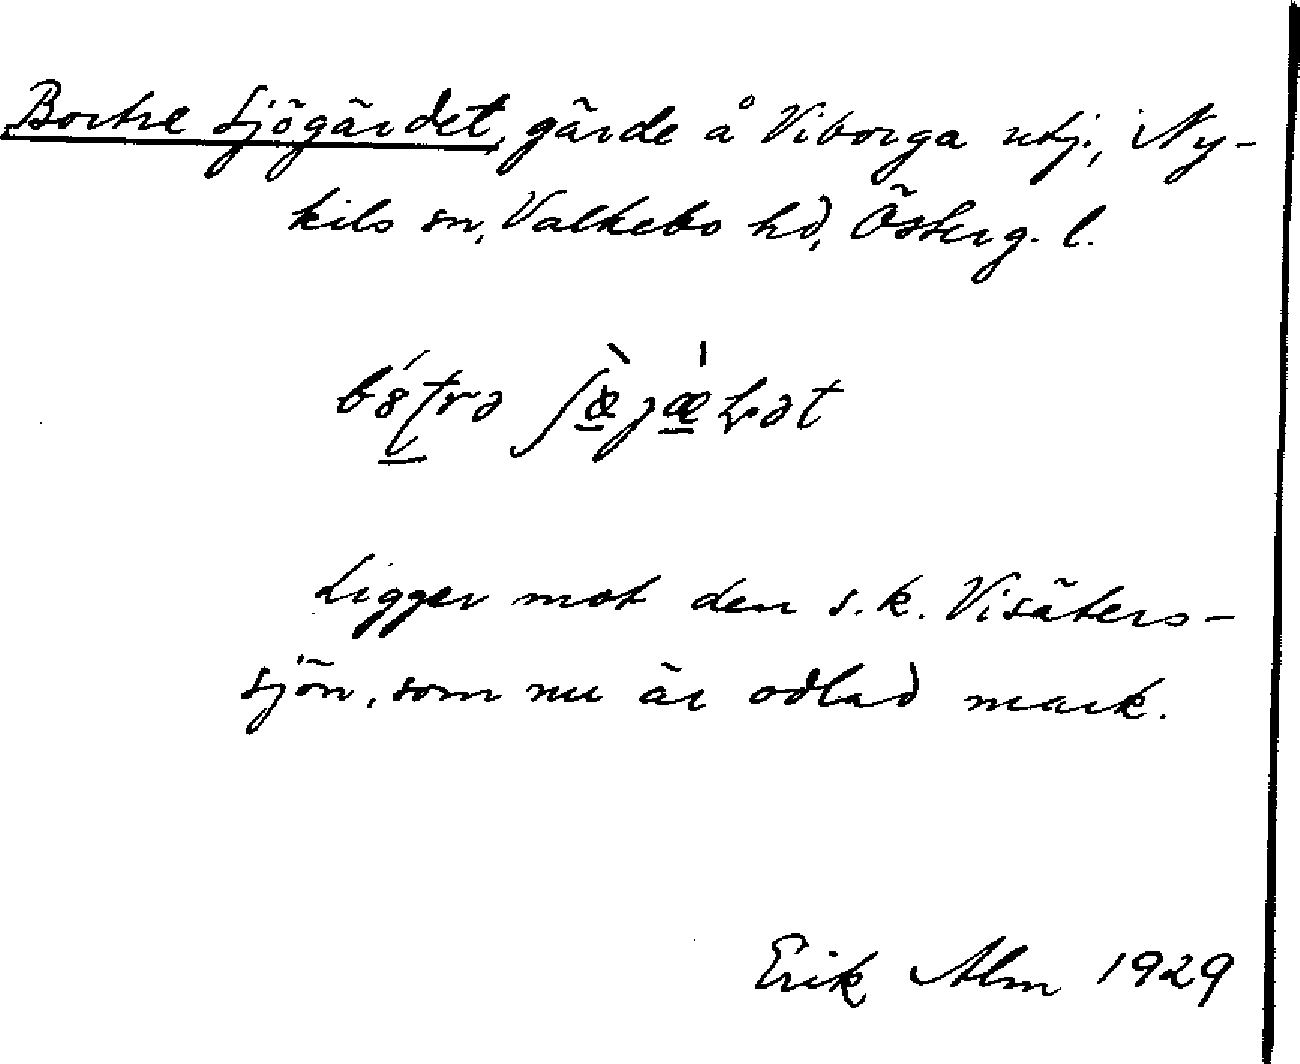 Bortre Sjögärdet, gärde å Viborga utj., Ny-
kils sn, Valkebo hd, Österg. l.
Ligger mot den s.k. Visäters-
sjön, som nu är odlad mark.
Erik Alm 1929